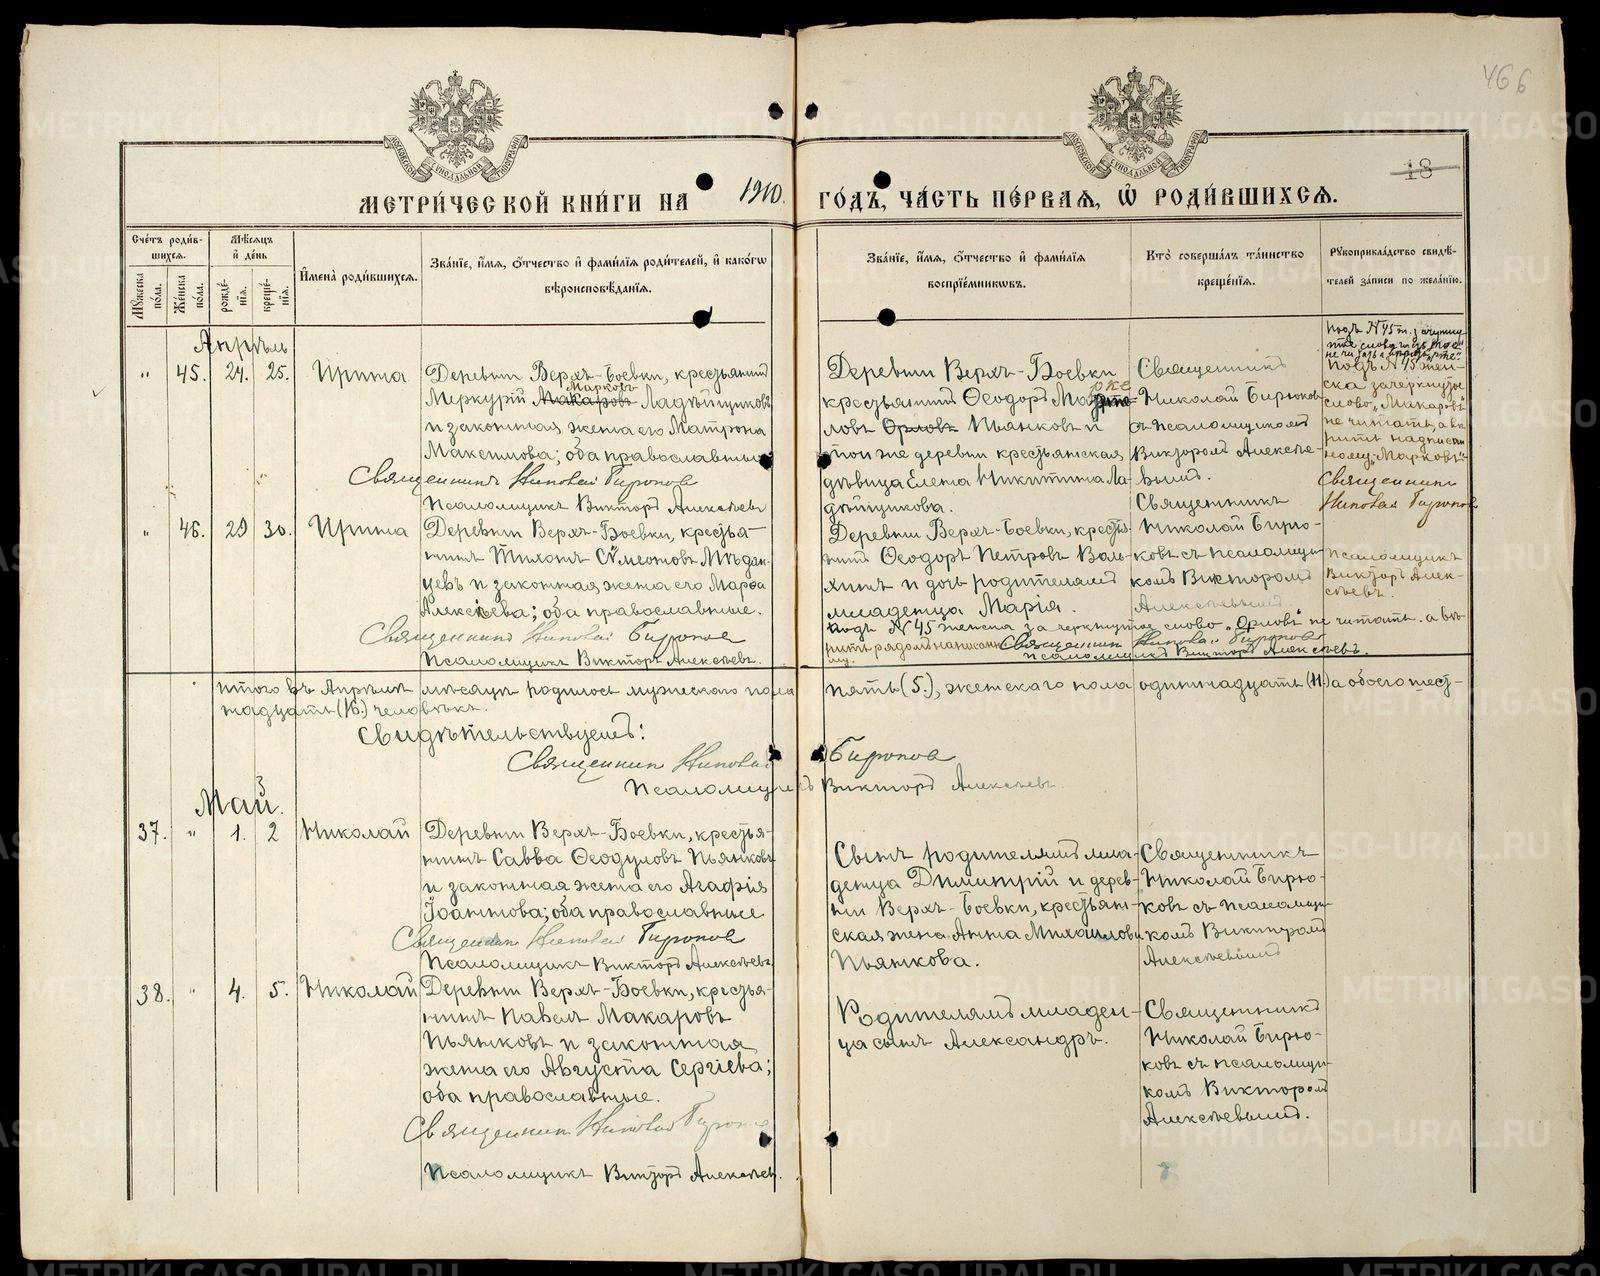 466
18
МОСКОВСКОЙ СѴНОДАЛЬНОЙ ТИПОГРАФІИ
МОСКОВСКОЙ СѴНОДАЛЬНОЙ ТИПОГРАФІИ
МЕТРИ́ЧЕСКОЙ КНИ́ГИ НА 1910. ГО́ДЪ, ЧА́СТЬ ПЕ́РВАѦ, Ѽ РОДИ́ВШИХСѦ.
Сче́тъ роди́в-
шихся.
Мꙋжеска по́ла.
Же́нска по́ла.
Мѣ́сяцъ
и҆ де́нь
рожде́-
нїя.
креще́-
нїя.
И҆мена̀ роди́вшихся.
Зва́нїе, и҆́мѧ, ѻ҆́тчество и҆ фами́лїѧ роди́телей, и҆ како́гѡ
вѣроисповѣ́данїѧ.
Зва́нїе, и҆́мѧ, ѻ҆́тчество и҆ фами́лїѧ
воспрїе́мникѡвъ.
Кто̀ соверша́лъ та́инство
креще́нїѧ.
Рꙋкоприкла́дство свидѣ́-
телей за́писи по жела́нїю.
Апрѣль
" 45. 24. 25. Ирина
Деревни Верхъ-Боевки, крестьянинъ
Марковъ
Меркурій Макаровъ Ладѣйщиковъ
и законная жена его Матрона
Максимова; оба православные
Священникъ Николай Бирюковъ
Псаломщикъ Викторъ Алексѣевъ
Деревни Верхъ-Боевки
крестьянинъ Ѳеодоръ
ловъ Орловъ Пьянковъ и
той же деревни крестьянская
дѣвица Елена Никитина Ла-
дѣйщикова.
Священникъ
Николай Бирюковъ
съ псаломщикомъ
Викторомъ Алексѣе-
вымъ.
Подъ №45 жен-
ска зачеркнутое
слово „Макаровъ"
не читать, а вѣ-
рить надписан-
ному „Марковъ".
Священникъ
Николай Бирюковъ
Псаломщикъ
Викторъ Алек-
сѣевъ.
" 46. 29 30. Ирина
Деревни Верхъ-Боевки, крестья-
нинъ Тихонъ Сѵмеоновъ Мѣдян-
цевъ и законная жена его Марѳа
Алексѣева; оба православные.
Священникъ Николай Бирюковъ
Псаломщикъ Викторъ Алексѣевъ.
Деревни Верхъ-Боевки, крестья-
нинъ Ѳеодоръ Петровъ Вал-
хинъ и дочь родителямъ
младенца Марія.
Священникъ
Николай Бирю-
ковъ съ псаломщи-
комъ Викторомъ
Алексѣевымъ
Подъ №45 женска зачеркнутое слово „Орловъ" не читать, а вѣ-
рить рядомъ написанно-
му. Священникъ Николай Бирюковъ
Псаломщикъ Викторъ Алексѣевъ.
Итого въ Апрѣлѣ мѣсяцѣ родилось мужескаго пола пять (5.), женскаго пола одиннадцать (11.) а обоего шест-
надцать (16.) человѣкъ.
Свидѣтельствуемъ:
Священникъ Николай Бирюковъ
Псаломщикъ Викторъ Алексѣевъ.
3
Май.
37. " 1. 2 Николай
Деревни Верхъ-Боевки, крестья-
нинъ Савва Ѳеодуловъ Пьянковъ
и законная жена его Агафія
Іоаннова; оба православные
Священникъ Николай Бирюковъ
Псаломщикъ Викторъ Алексѣевъ
Сынъ родителямъ мла-
денца Димитрій и дерев-
ни Верхъ-Боевки, крестьян-
ская жена Анна Михаилова
Пьянкова.
Священникъ
Николай Бирю-
ковъ съ псаломщи-
комъ Викторомъ
Алексѣевымъ
38. " 4. 5. Николай
Деревни Верхъ-Боевки, крестья-
нинъ Павелъ Макаровъ
Пьянковъ и законная
жена его Августа Сергіева;
оба православные.
Священникъ Николай Бирюковъ
Псаломщикъ Викторъ Алексѣевъ.
Родителямъ младен-
ца сынъ Александръ.
Священникъ
Николай Бирю-
ковъ съ псаломщи-
комъ Викторомъ
Алексѣевымъ.
METRIKI.GASO-URAL.RU